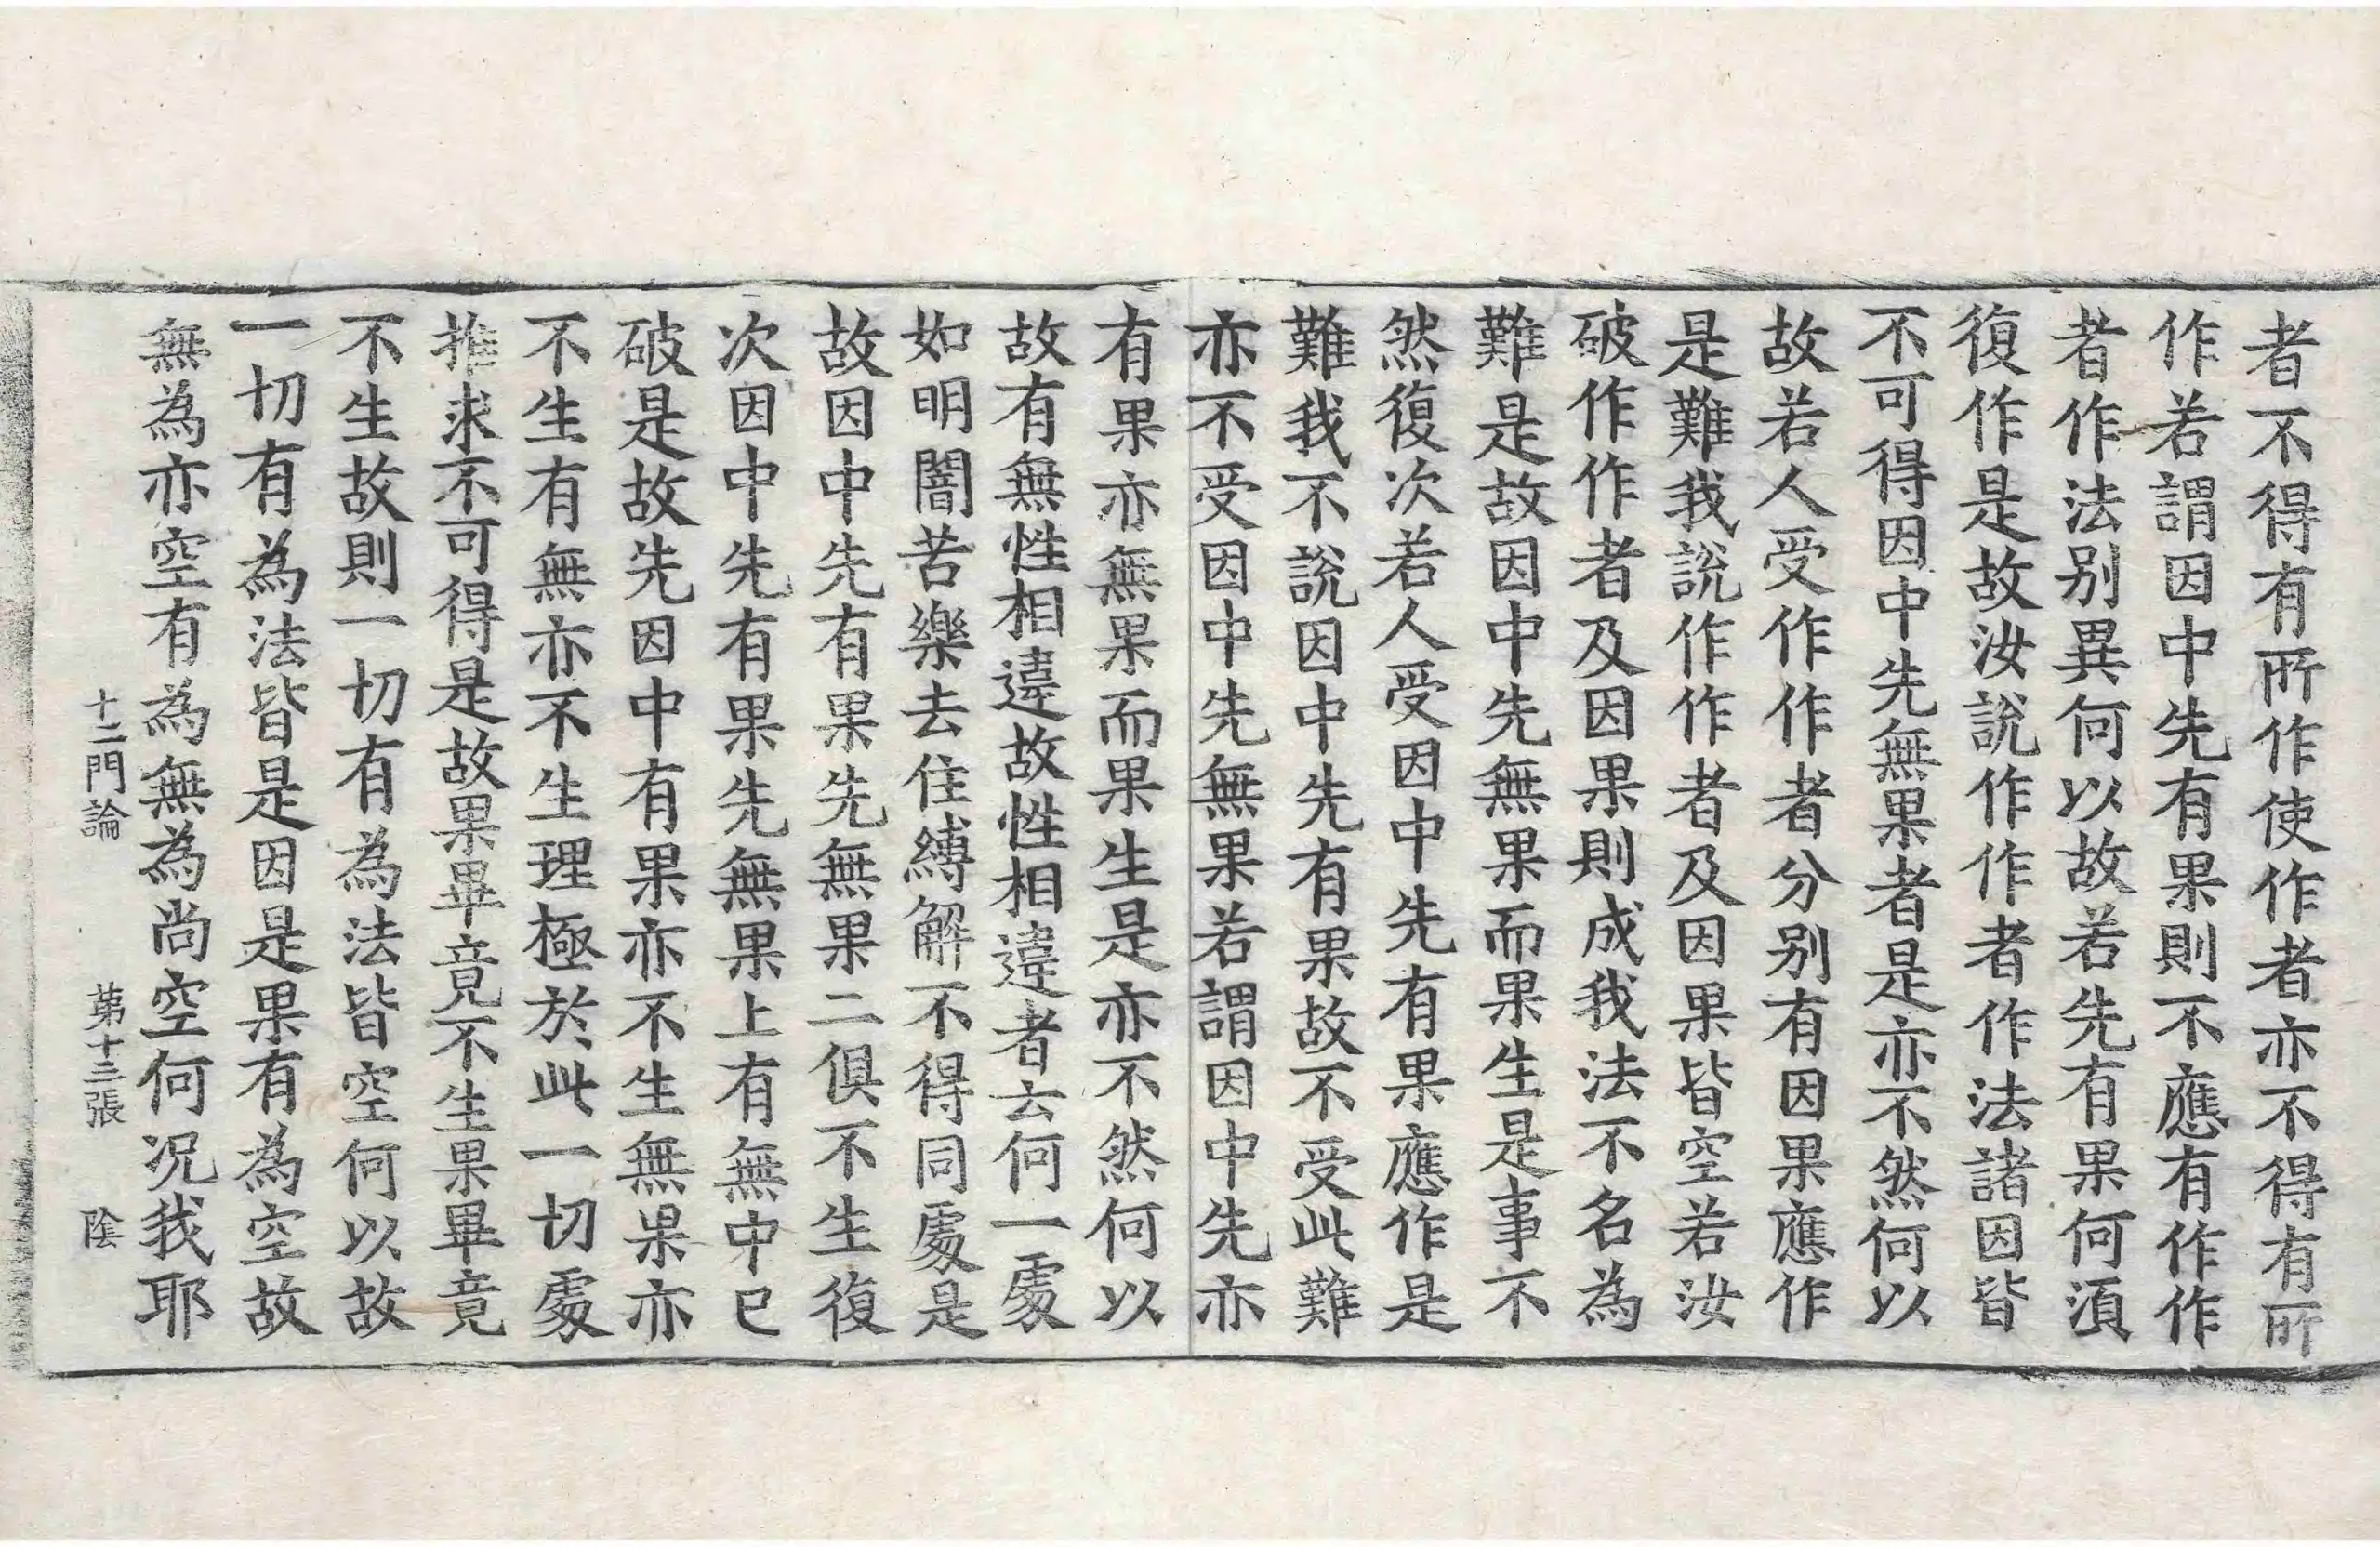 者不得有所作使作者亦不得有所
作若謂因中先有果則不應有作作
者作法别異何以故若先有果何湏
復作是故汝說作作者作法諸因皆
不可得因中先無果者是亦不然何以
故若人受作作者分别有因果應作
是難我說作作者及因果皆空若汝
破作作者及因果則成我法不名為
難是故因中先無果而果生是事不
然復次若人受因中先有果應作是
難我不說因中先有果故不受此難
亦不受因中先無果若謂因中先亦
有果亦無果而果生是亦不然何以
故有無性相違故性相違者云何一處
如明闇苦樂去住縛解不得同處是
故因中先有果先無果二俱不生復
次因中先有果先無果上有無中已
破是故先因中有果亦不生無果亦
不生有無亦不生理極於此一切處
推求不可得是故果畢竟不生果畢竟
不生故則一切有為法皆空何以故
一切有為法皆是因是果有為空故
無為亦空有為無為尚空何况我耶
十二門論 苐十三張 陰